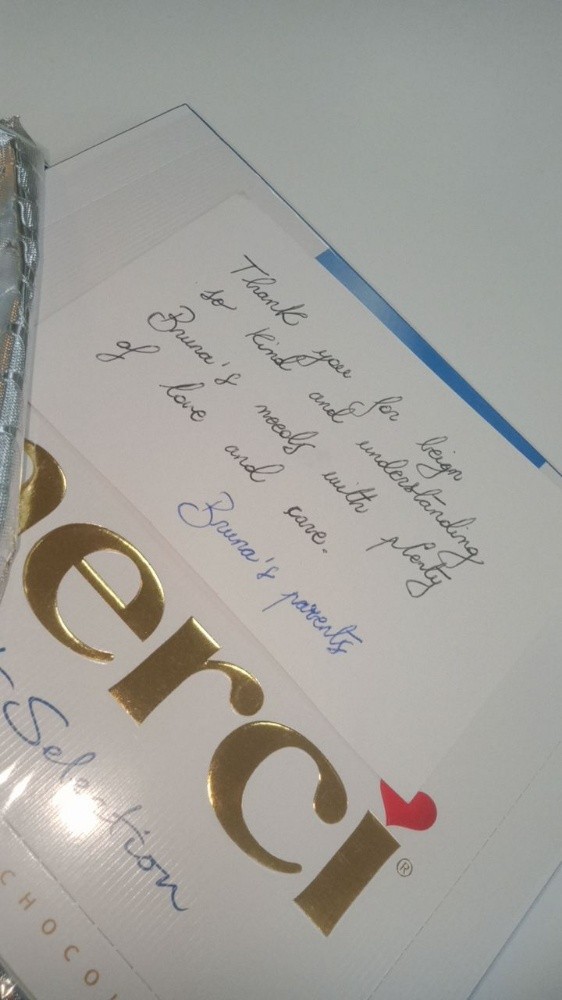 Thank you for beign
so kind and understanding
Bruna's needs with plenty
of love and care.
Bruna's parents
merci®
Selection
CHOCOL